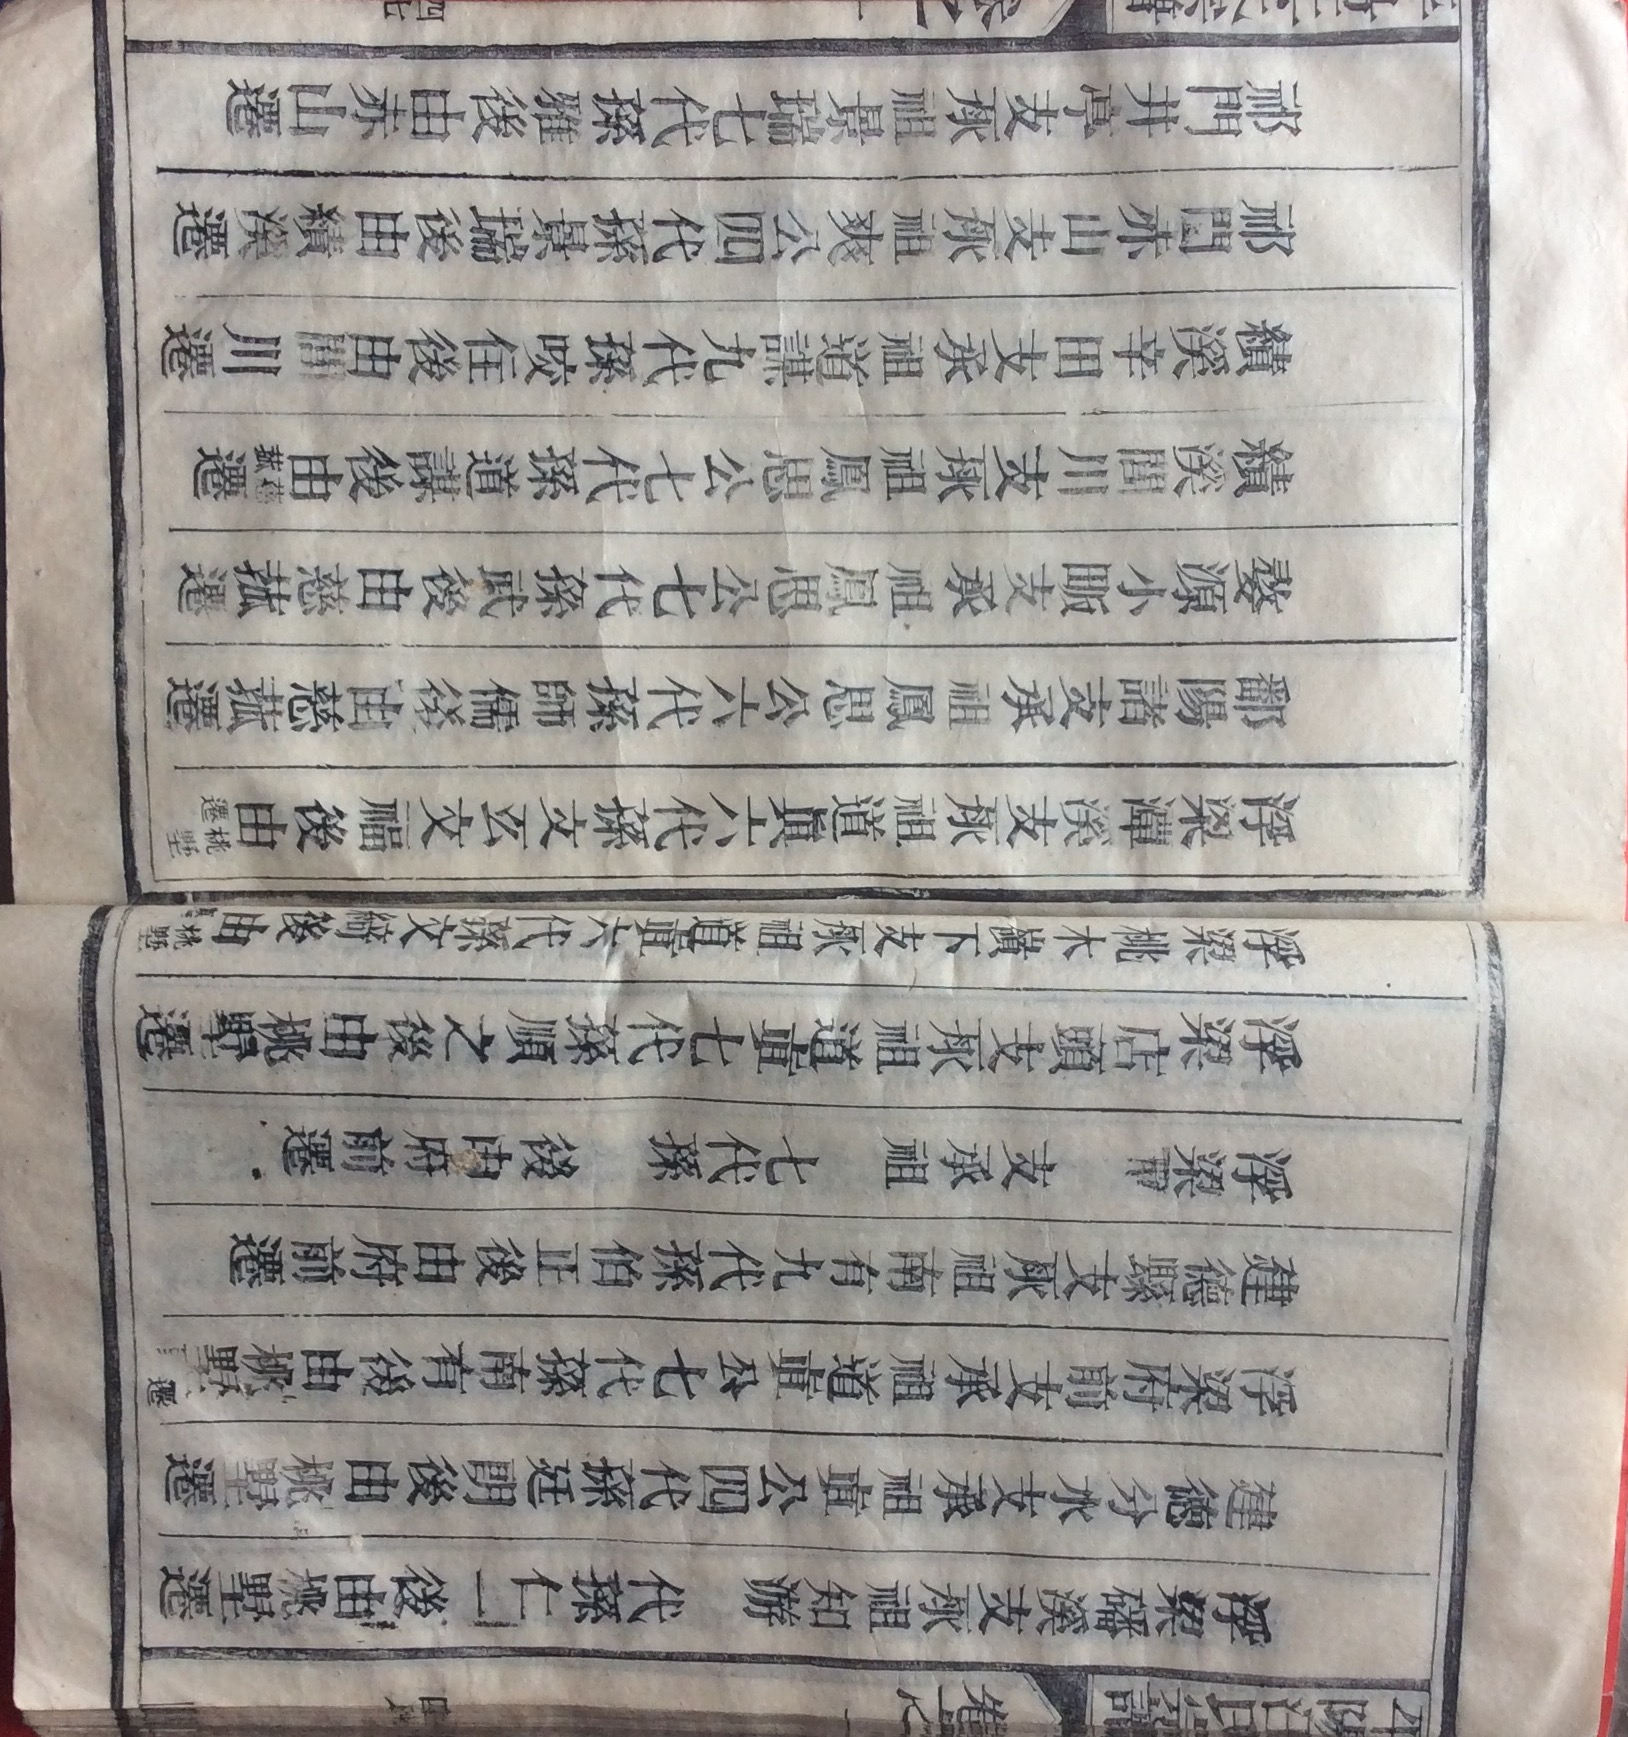 浮梁磻溪支承祖知游　代孫仁一後由桃墅遷
建德分水支承祖真公四代孫廷朋後由桃墅遷
浮梁府前支承祖道重公七代孫南有後由桃墅遷
建德縣支承祖南有九代孫伯正後由府前遷
浮梁　支承祖　七代孫　後由府前遷
浮梁店頭支承祖道重七代孫順之後由桃墅遷
浮梁桃木嶺下支承祖道重六代孫文綺後由桃墅
浮梁潭溪支承祖道真八代孫文玄文福後由桃墅遷
鄱陽諸支承祖鳳思公六代孫師儒後由慈菰遷
婺源小畈支承祖鳳思公七代孫武後由慈菰遷
績溪閬川支承祖鳳思公七代孫道謀後由慈菰遷
績溪辛田支承祖道謀九代孫咬住後由閬川遷
祁門赤山支承祖爽公四代孫景瑞後由績溪遷
祁門井亭支承祖景瑞七代孫雅後由赤山遷